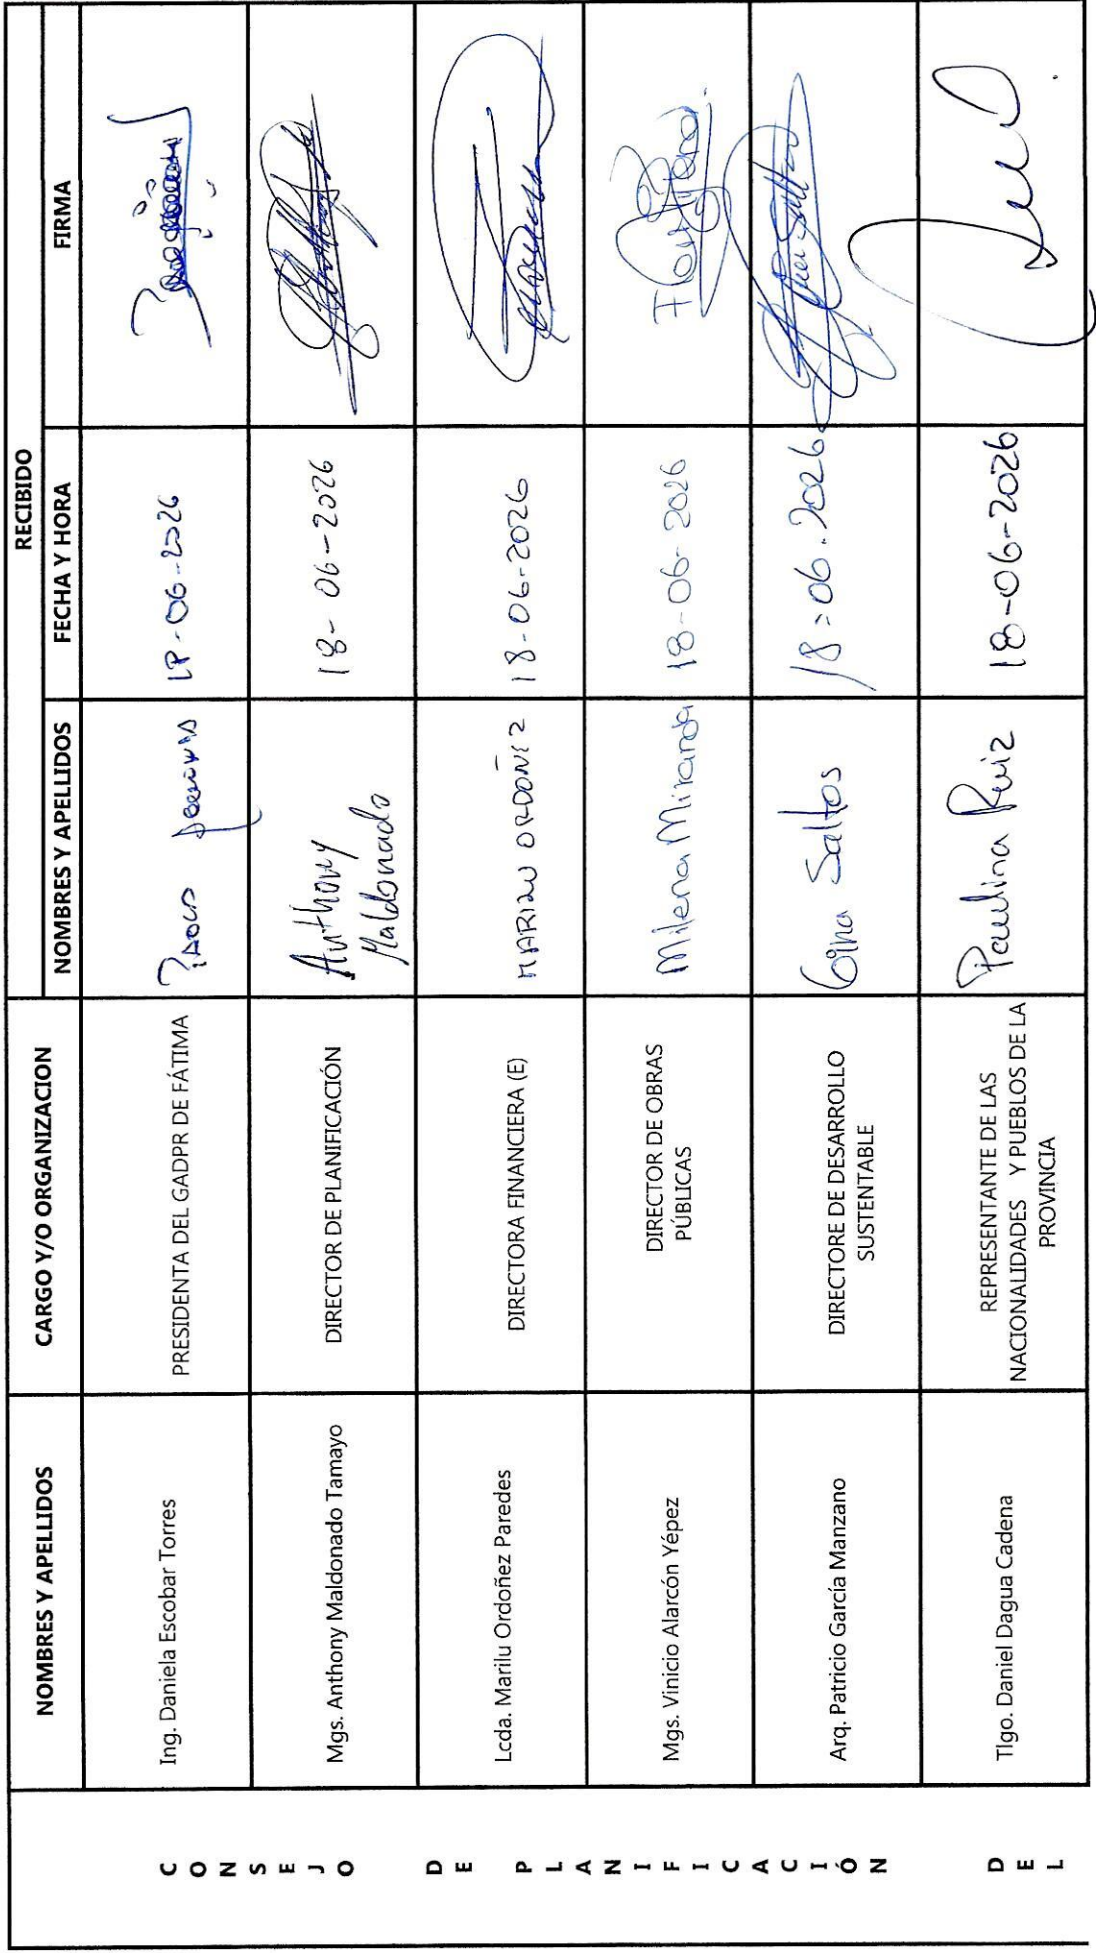 RECIBIDO
NOMBRES Y APELLIDOS
CARGO Y/O ORGANIZACION
NOMBRES Y APELLIDOS
FECHA Y HORA
FIRMA
CONSEJO
DE
PLANIFICACIÓN
DEL
Ing. Daniela Escobar Torres
PRESIDENTA DEL GADPR DE FÁTIMA
18-06-2026
Mgs. Anthony Maldonado Tamayo
DIRECTOR DE PLANIFICACIÓN
Anthony
Maldonado
18-06-2026
Lcda. Marilu Ordoñez Paredes
DIRECTORA FINANCIERA (E)
MARILU ORDOÑEZ
18-06-2026
Mgs. Vinicio Alarcón Yépez
DIRECTOR DE OBRAS
PÚBLICAS
Milena Miranda
18-06-2026
Arq. Patricio García Manzano
DIRECTORE DE DESARROLLO
SUSTENTABLE
Gina Saltos
18-06-2026
Tlgo. Daniel Dagua Cadena
REPRESENTANTE DE LAS
NACIONALIDADES Y PUEBLOS DE LA
PROVINCIA
Paulina Ruiz
18-06-2026